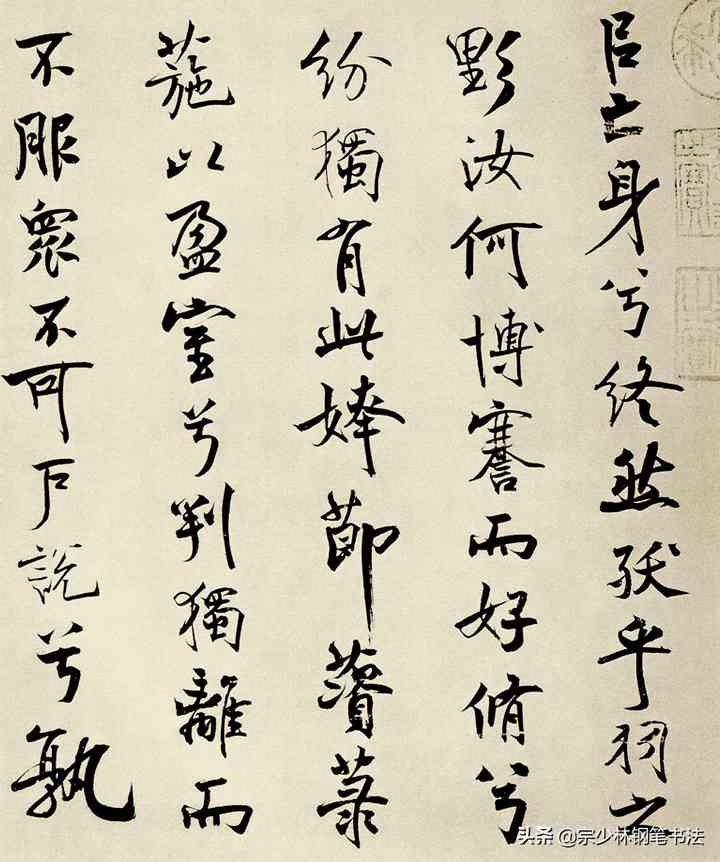 㠯亡身兮終然殀乎羽之
野汝何博謇而好脩兮
紛獨有此姱節薋菉
葹以盈室兮判獨離而
不服衆不可戶說兮孰
头条 @宗少林钢笔书法